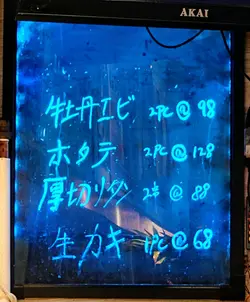 AKAI
牡丹エビ 2PC @ 98
ホタテ 2PC @ 128
厚切リタン 2本 @ 88
生カキ 1PC @ 68